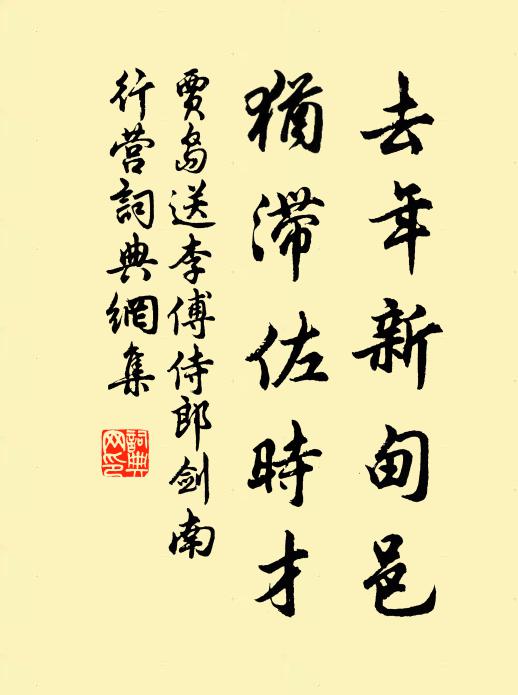 去年新甸邑
猶滯佐時才
賈島送李傅侍郎劍南
行营詞典網集
詞典
网印